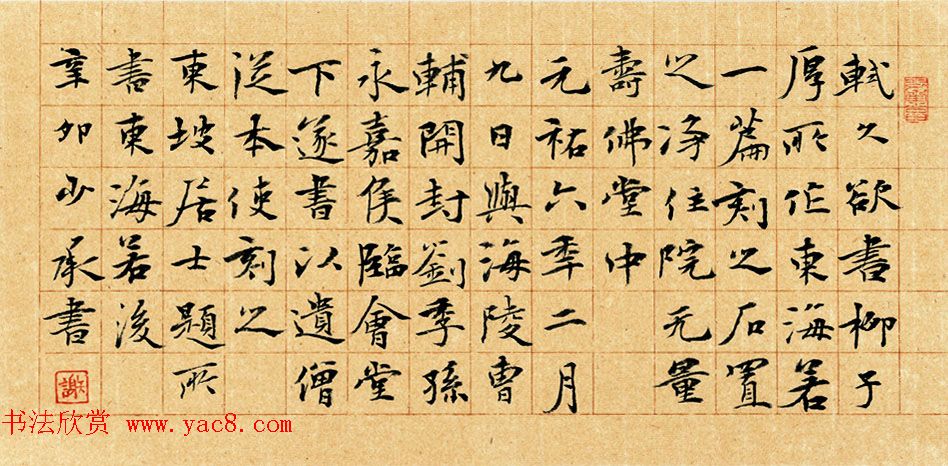 軾久欲書柳子
厚所作東海若
一篇刻之石置
之淨住院无量
壽佛堂中
元祐六年二月
九日與海陵曹
輔開封劉季孫
永嘉侯臨會堂
下遂書以遺僧
從本使刻之
東坡居士題所
書東海若後
辛卯少承書
謝
书法欣赏 www.yac8.com